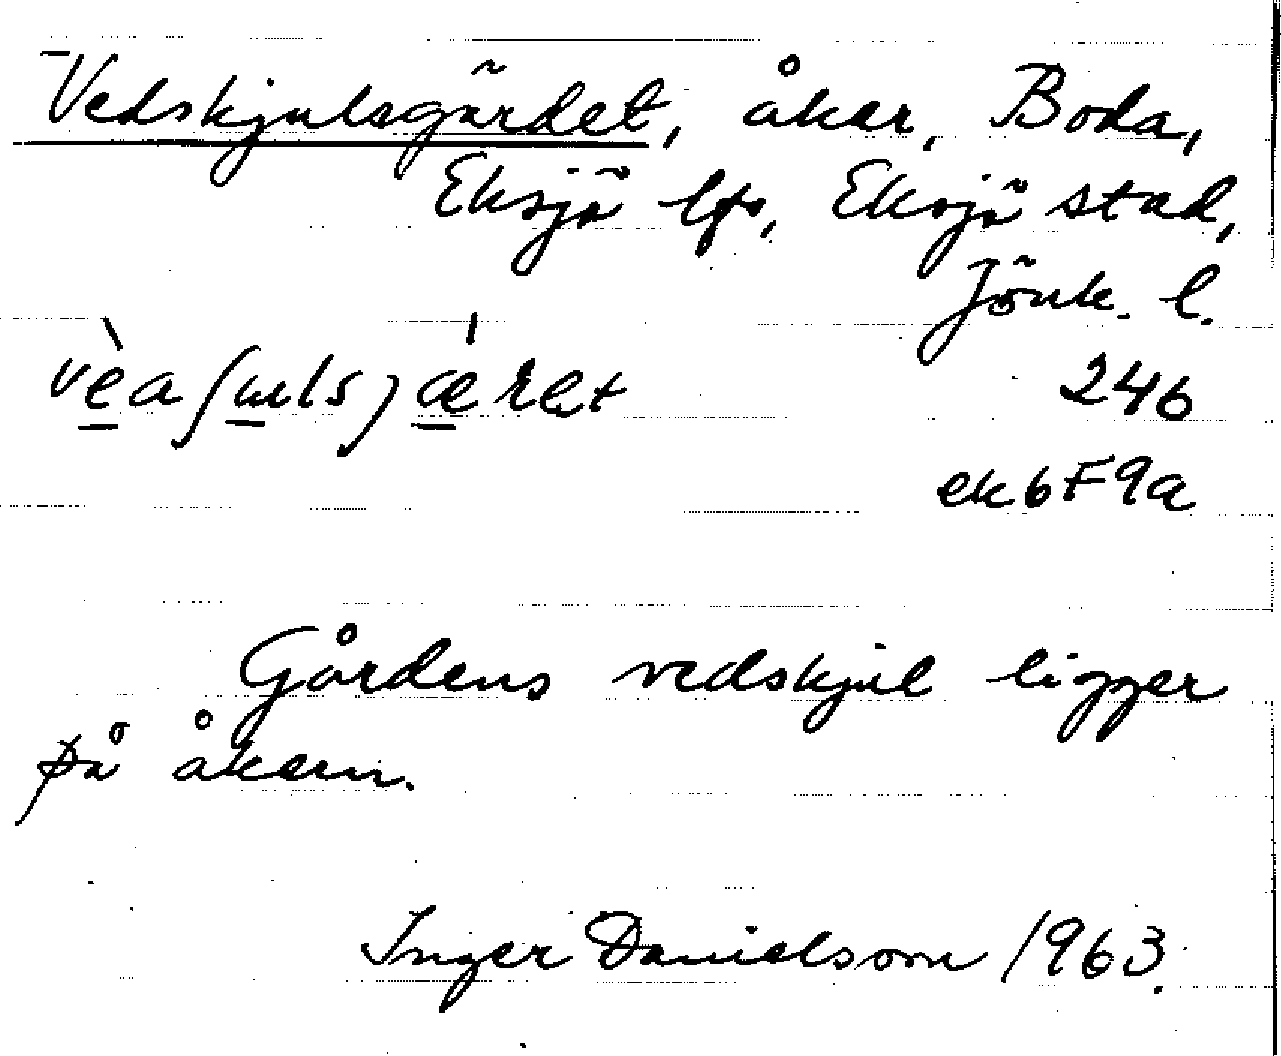 Vedskjulsgärdet, åker, Boda,
Eksjö lfs, Eksjö stad,
Jönk. l.
246
ek 6 F 9a
Gårdens vedskjul ligger
på åkern.
Inger Danielsson 1963.